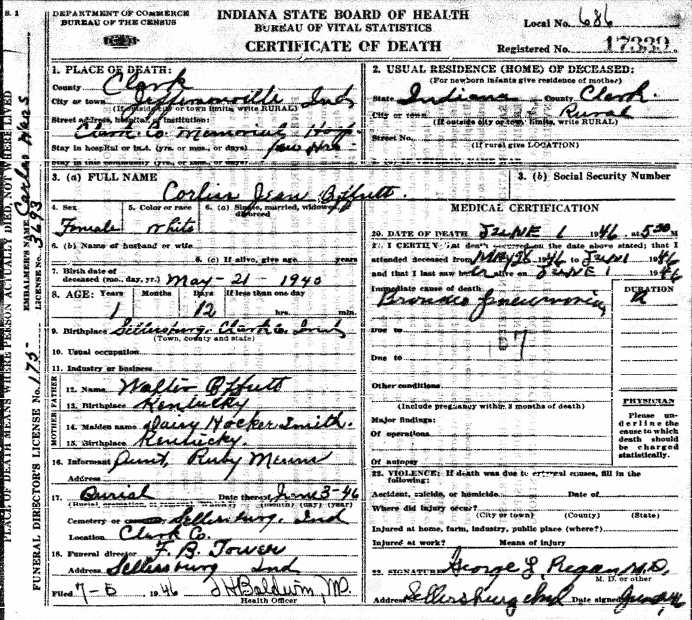 S. 1
DEPARTMENT OF COMMERCE
BUREAU OF THE CENSUS
INDIANA STATE BOARD OF HEALTH
BUREAU OF VITAL STATISTICS
CERTIFICATE OF DEATH
Local No. 686
Registered No. 17339
1. PLACE OF DEATH:
County Clark
City or town Jeffersonville Ind
(If outside city or town limits, write RURAL)
Street address, hospital, or institution:
Clark Co. Memorial Hosp.
Stay in hospital or inst. (yrs., or mos., or days) few Hrs
Stay in this community (yrs., or mos., or days)
2. USUAL RESIDENCE (HOME) OF DECEASED:
(For newborn infants give residence of mother)
State Indiana County Clark
City or town Rural
(If outside city or town limits, write RURAL)
Street No.
(If rural give LOCATION)
3. (a) FULL NAME
Corliss Jean Offutt.
3. (b) Social Security Number
4. Sex
Female
5. Color or race
White
6. (a) Single, married, widowed, divorced
6. (b) Name of husband or wife
6. (c) If alive, give age years
7. Birth date of
deceased (mo., day, yr.) May - 21 1940
8. AGE: Years Months Days If less than one day
1 12 hrs. min.
9. Birthplace Sellersburg, Clark Co. Ind
(Town, county and state)
10. Usual occupation
11. Industry or business
FATHER
12. Name Walter Offutt
13. Birthplace Kentucky
MOTHER
14. Maiden name Daisy Hocker Smith.
15. Birthplace Kentucky.
16. Informant Aunt, Ruby
Address
17. Burial Date thereof June 3-46
(Burial, cremation, or removal) (month) (day) (year)
Cemetery or Sellersburg, Ind
Location Clark Co.
18. Funeral director F. B. Tower
Address Sellersburg Ind
Filed 7-5 1946 Baldwin, MD.
Health Officer
MEDICAL CERTIFICATION
20. DATE OF DEATH JUNE 1 1946 at M
21. I CERTIFY that death occurred on the date above stated; that I
attended deceased from MAY 1946 to JUN 1 1946
and that I last saw alive on JUNE 1 1946
Immediate cause of death
Broncho pneumonia
DURATION
107
Due to
Due to
Other conditions
(Include pregnancy within 3 months of death)
Major findings:
Of operations
Of autopsy
PHYSICIAN
Please underline
the cause to which
death should
be charged
statistically.
22. VIOLENCE: If death was due to external causes, fill in the
following:
Accident, suicide, or homicide Date of
Where did injury occur?
(City or town) (County) (State)
Injured at home, farm, industry, public place (where?)
Injured at work? Means of injury
SIGNATURE George L Regan M.D.
M. D. or other
Address Sellersburg Ind Date signed 46
PLACE OF DEATH MEANS WHERE PERSON ACTUALLY DIED, NOT WHERE LIVED
EMBALMER'S NAME Carlos
LICENSE No. 3693
FUNERAL DIRECTOR'S LICENSE No. 175-